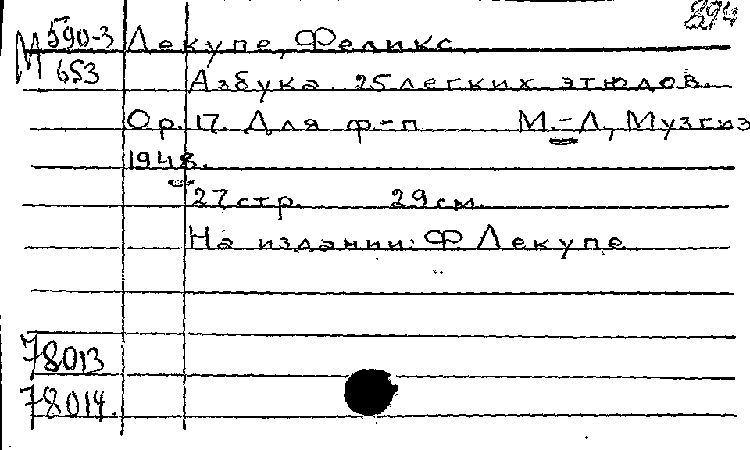 294
М 590-3
653
Лекупе, Феликс
Азбука. 25 легких этюдов.
Ор. 17. Для ф-п М.-Л, Музгиз
1948.
27 стр. 29 см.
На издании: Ф Лекупе
78013
78014.